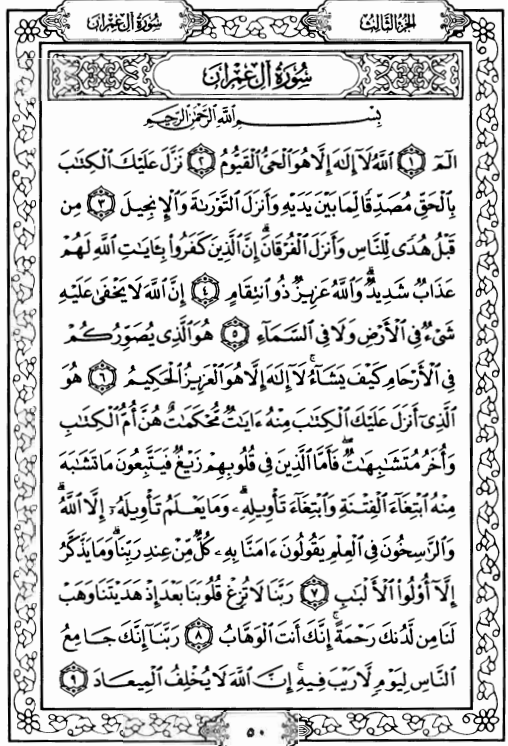 سُورَةُ آلِ عِمْرَانَ الجُزءُ الثَّالِثُ
سُورَةُ آلِ عِمْرَانَ
بِسْمِ اللَّهِ الرَّحْمَٰنِ الرَّحِيمِ
الٓمٓ ١ اللَّهُ لَآ إِلَٰهَ إِلَّا هُوَ الْحَىُّ الْقَيُّومُ ٢ نَزَّلَ عَلَيْكَ الْكِتَٰبَ
بِالْحَقِّ مُصَدِّقًا لِّمَا بَيْنَ يَدَيْهِ وَأَنزَلَ التَّوْرَىٰةَ وَالْإِنجِيلَ ٣ مِن
قَبْلُ هُدًى لِّلنَّاسِ وَأَنزَلَ الْفُرْقَانَ ۗ إِنَّ الَّذِينَ كَفَرُوا۟ بِـَٔايَٰتِ اللَّهِ لَهُمْ
عَذَابٌ شَدِيدٌ ۗ وَاللَّهُ عَزِيزٌ ذُو انتِقَامٍ ٤ إِنَّ اللَّهَ لَا يَخْفَىٰ عَلَيْهِ
شَىْءٌ فِى الْأَرْضِ وَلَا فِى السَّمَآءِ ٥ هُوَ الَّذِى يُصَوِّرُكُمْ
فِى الْأَرْحَامِ كَيْفَ يَشَآءُ ۚ لَآ إِلَٰهَ إِلَّا هُوَ الْعَزِيزُ الْحَكِيمُ ٦ هُوَ
الَّذِىٓ أَنزَلَ عَلَيْكَ الْكِتَٰبَ مِنْهُ ءَايَٰتٌ مُّحْكَمَٰتٌ هُنَّ أُمُّ الْكِتَٰبِ
وَأُخَرُ مُتَشَٰبِهَٰتٌ ۖ فَأَمَّا الَّذِينَ فِى قُلُوبِهِمْ زَيْغٌ فَيَتَّبِعُونَ مَا تَشَٰبَهَ
مِنْهُ ابْتِغَآءَ الْفِتْنَةِ وَابْتِغَآءَ تَأْوِيلِهِۦ ۗ وَمَا يَعْلَمُ تَأْوِيلَهُۥٓ إِلَّا اللَّهُ ۗ
وَالرَّٰسِخُونَ فِى الْعِلْمِ يَقُولُونَ ءَامَنَّا بِهِۦ كُلٌّ مِّنْ عِندِ رَبِّنَا ۗ وَمَا يَذَّكَّرُ
إِلَّآ أُو۟لُوا۟ الْأَلْبَٰبِ ٧ رَبَّنَا لَا تُزِغْ قُلُوبَنَا بَعْدَ إِذْ هَدَيْتَنَا وَهَبْ
لَنَا مِن لَّدُنكَ رَحْمَةً ۚ إِنَّكَ أَنتَ الْوَهَّابُ ٨ رَبَّنَآ إِنَّكَ جَامِعُ
النَّاسِ لِيَوْمٍ لَّا رَيْبَ فِيهِ ۚ إِنَّ اللَّهَ لَا يُخْلِفُ الْمِيعَادَ ٩
٥٠